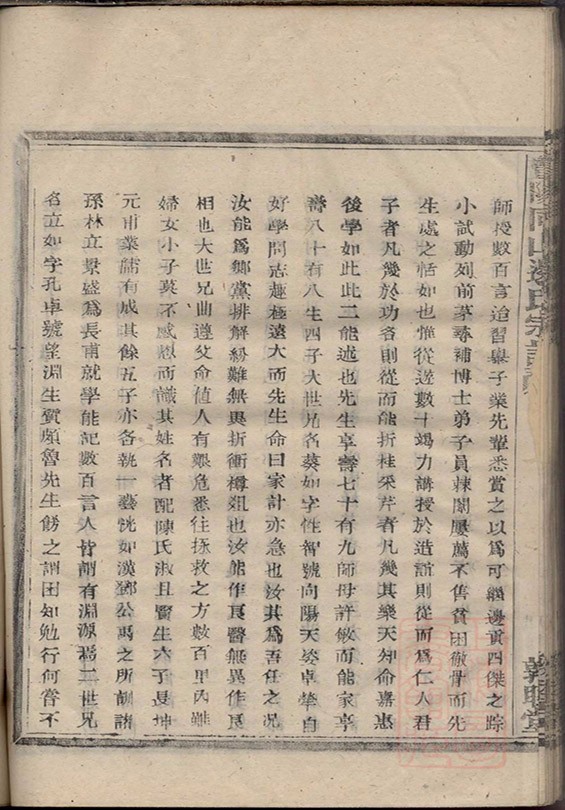 師授數百言治習舉子業先輩悉賞之以爲可繼邊貢四傑之踪
小試動列前茅尋補博士弟子員棘闈屢薦不售貧困徹骨而先
生處之恬如也惟從遊數十竭力講授於造詣則從而爲仁人君
子者凡幾於功名則從而能折桂采芹者凡幾其樂天知命嘉惠
後學如此此二能述也先生享壽七十有九師母許敏而能家享
壽八十有八生四子大世兄名葵如字性智號向陽天姿卓犖自
好學問志趣極遠大而先生命曰家計亦急也汝其爲吾任之况
汝能爲鄉黨排解紛難無異折衝樽俎也汝能作良醫無異作良
相也大世兄曲遵父命値人有艱危悉往拯救之方數百里內雖
婦女小子莫不感恩而識其姓名者配陳氏淑且賢生六子長坤
元甫業儒有成其餘五子亦各執一藝恍如漢鄧公禹之所訓諸
孫林立景盛爲長甫就學能記數百言人皆謂有淵源焉二世兄
名立如字孔卓號望淵生質頗魯先生勝之謂困知勉行何嘗不
南山邊氏宗譜